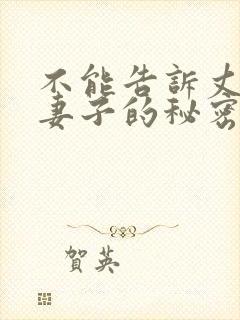 不能告訴丈
妻子的秘密
賀英